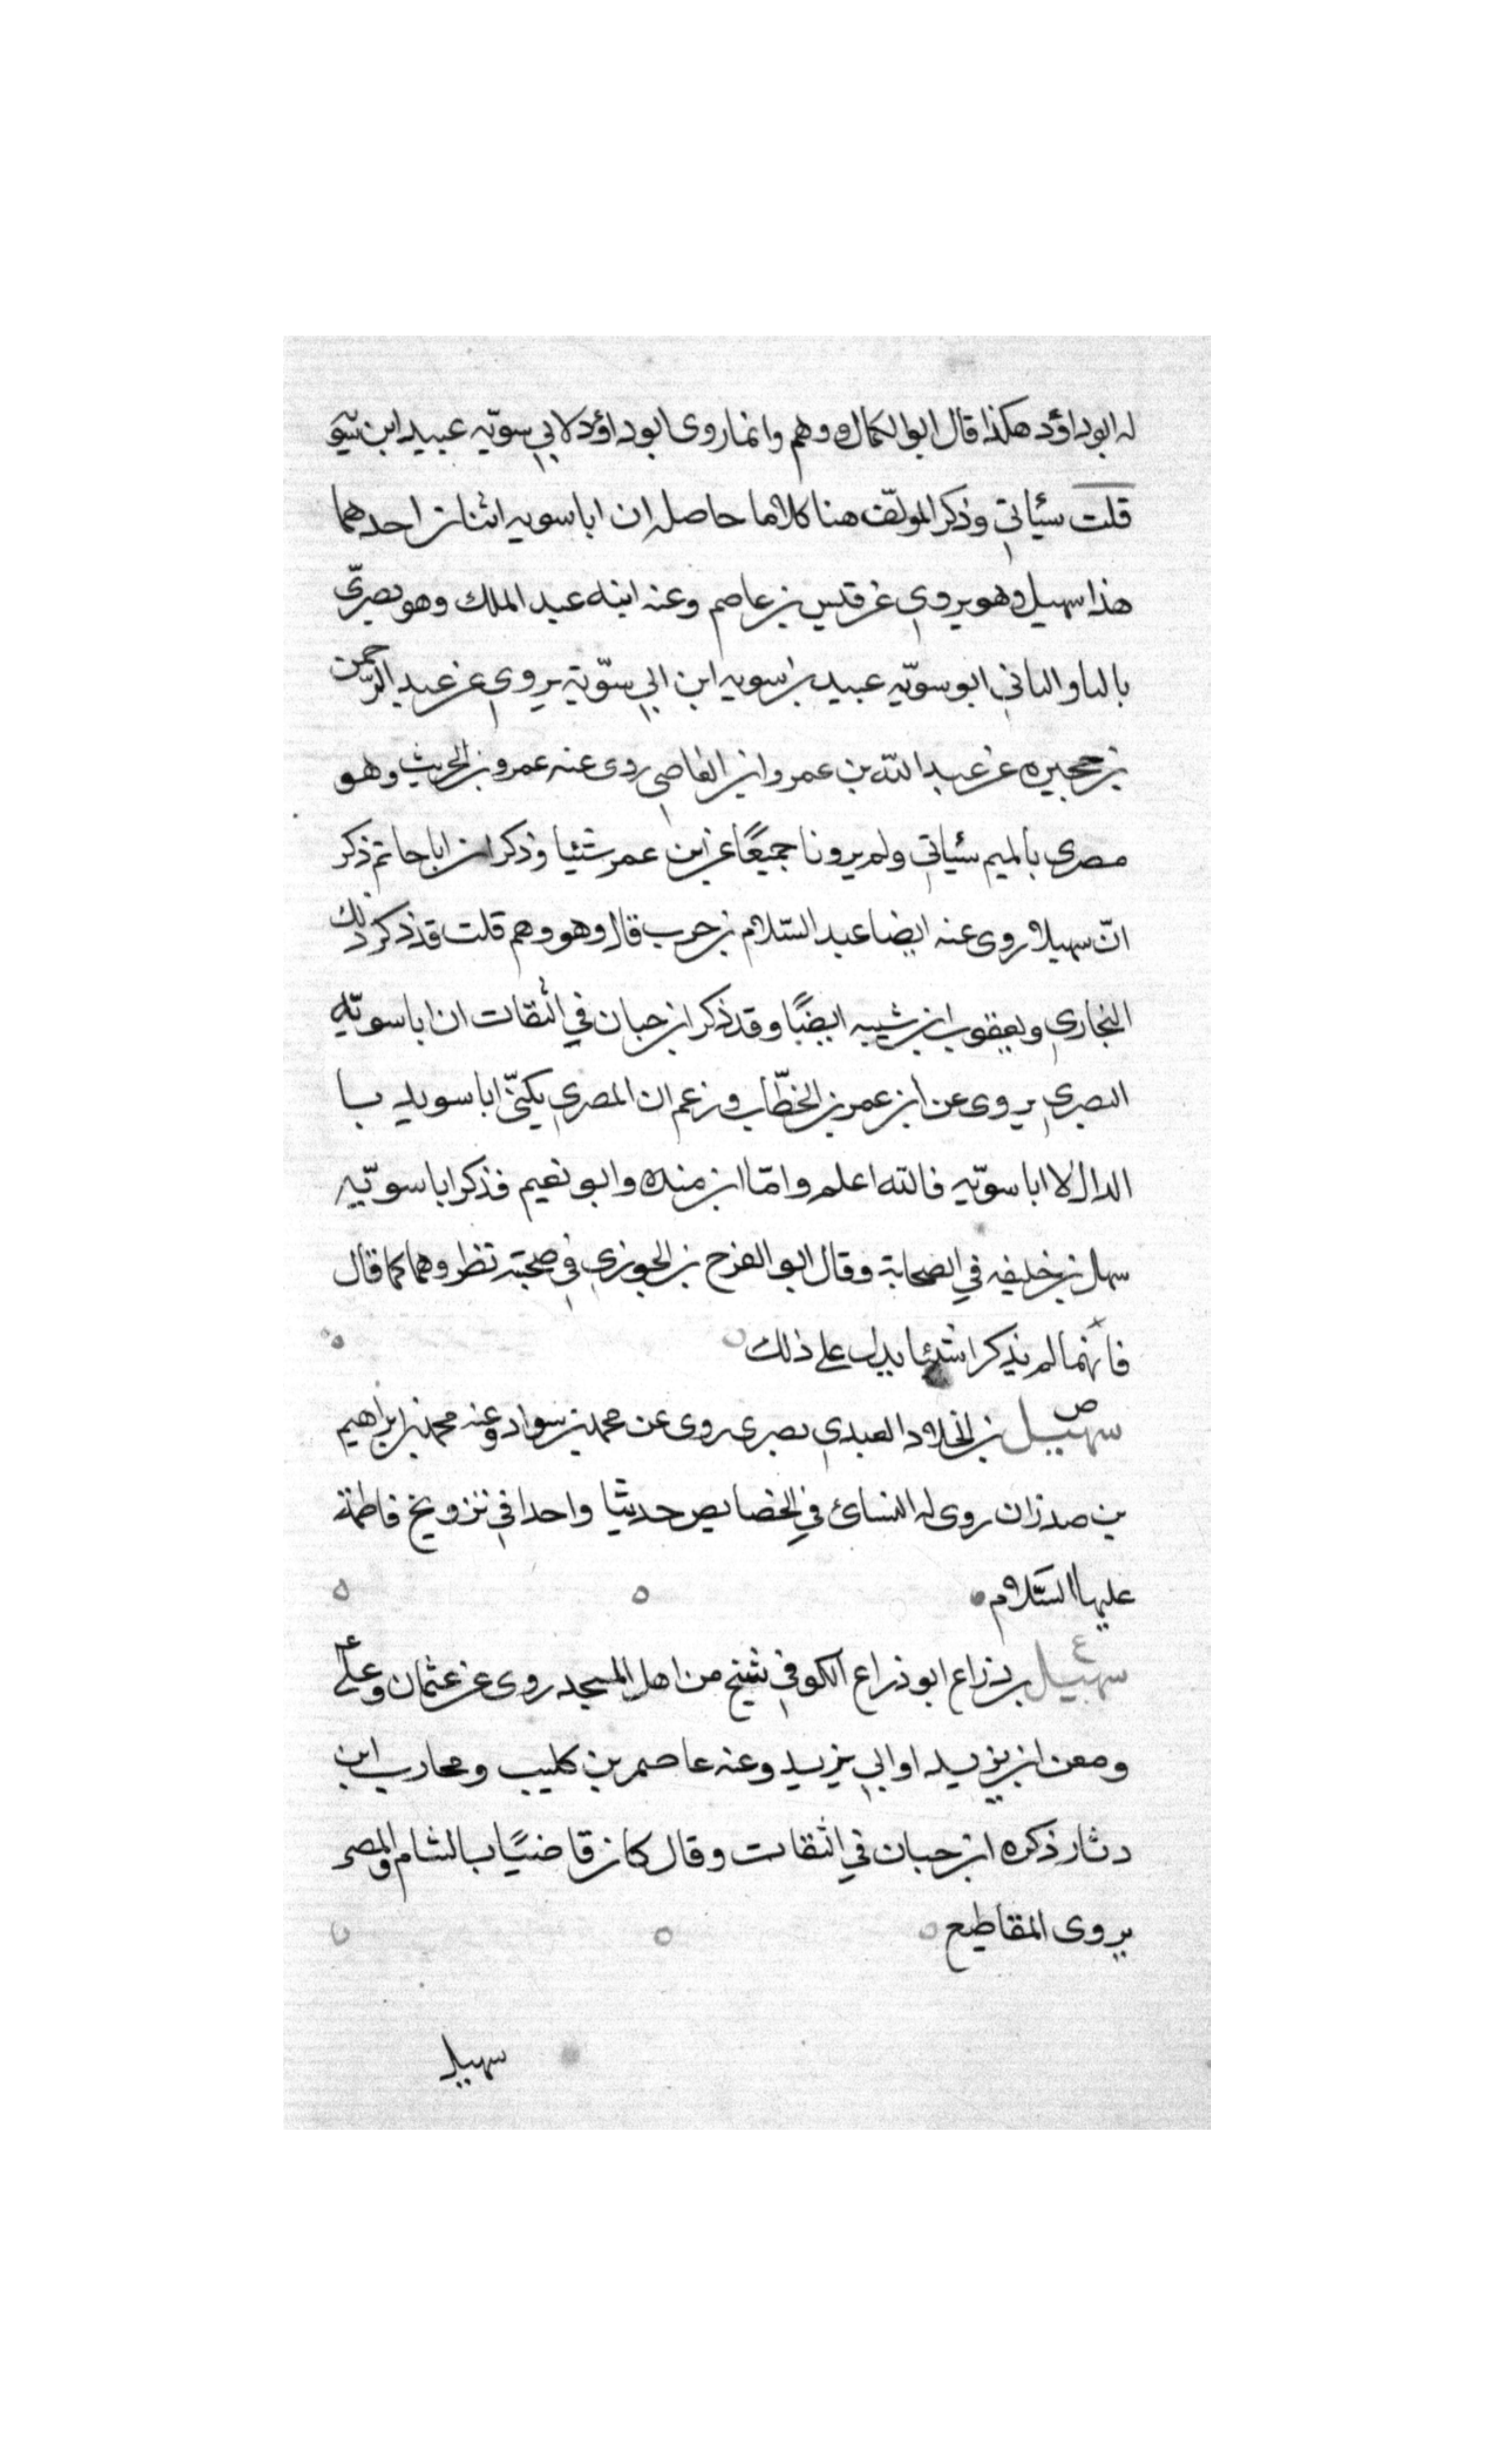 له ابو داؤد هكذا قال ابو الكمال وهو وهم وانما روى ابو داؤد لابي سويّه عبيد ابن سَّو
قلت سئياتي وذكر المولّف هنا كلاما حاصله ان ابا سويه اثنان احدهما
هذا سهيل وهو يروي عن قيس بن عاصم وعنه ابنه عبد الملك وهو بصريّ
بالبا والثاني ابو سويّه عبيد بن سويه ابن ابي سوّية يروي عن عبد الرّحمن
بن حجيره عن عبد الله بن عمرو ابن العاصي روى عنه عمرو بن الحريث وهو
مصرى بالميم سئياتي ولم يرونا جميعًا عن ابن عمر شئيا وذكر ان ابا حاتم ذكر
انّ سهيلا روى عنه ايضا عبد السّلام بن حرب قال وهو وهم قلت قد ذكر ذلك
البخاري ويعقوب ابن شيبه ايضًا وقد ذكر ابن حبان في الثقات ان ابا سويّه
البصري يروى عن ابن عمر بن الخطّاب وزعم ان المصري يكنّى ابا سويد با
الدال لا ابا سوّيه فالله اعلم وامّا ابن منده وابو نعيم فذكرا ابا سوّيه
سهل بن خليفه في الصحابة وقال ابو الفرج بن الجوزي في صحبته نظر وهما كما قال
فانهما لم يذكرا شئيا يدل على ذلك
ص
سهيل بن الخلاد العبدي بصرى روى عن محمد بن سواد وعنه محمد بن ابراهيم
بن صدران روى له النسائ في الخصايص حديثا واحدا في تزويج فاطمة
عليها السّلام
ع
سهيل بن ذراع ابو ذراع الكوفي شيخ من اهل المسجد روى عن عثمان وعلي
ومعن ابن يزيد او ابي يزيد وعنه عاصم بن كليب ومحارب ابن
دثار ذكره ابن حبان في الثقات وقال كان قاضيًا بالشام والمصر
يروى المقاطيع
سهيل